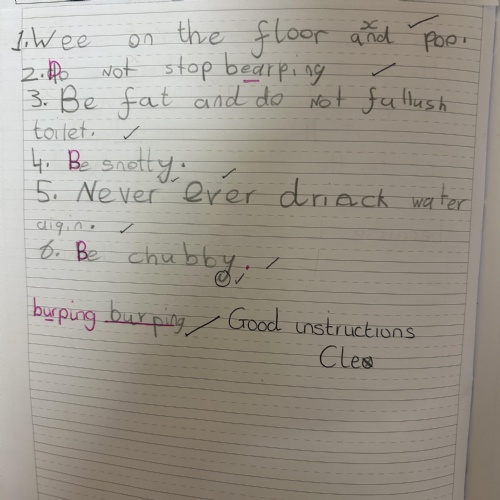 1. Wee on the floor and poo.
2. Do not stop bearping
3. Be fat and do not fullush
toilet.
4. Be snotty.
5. Never ever drinck water
aigin.
6. Be chubby.
burping burping Good instructions